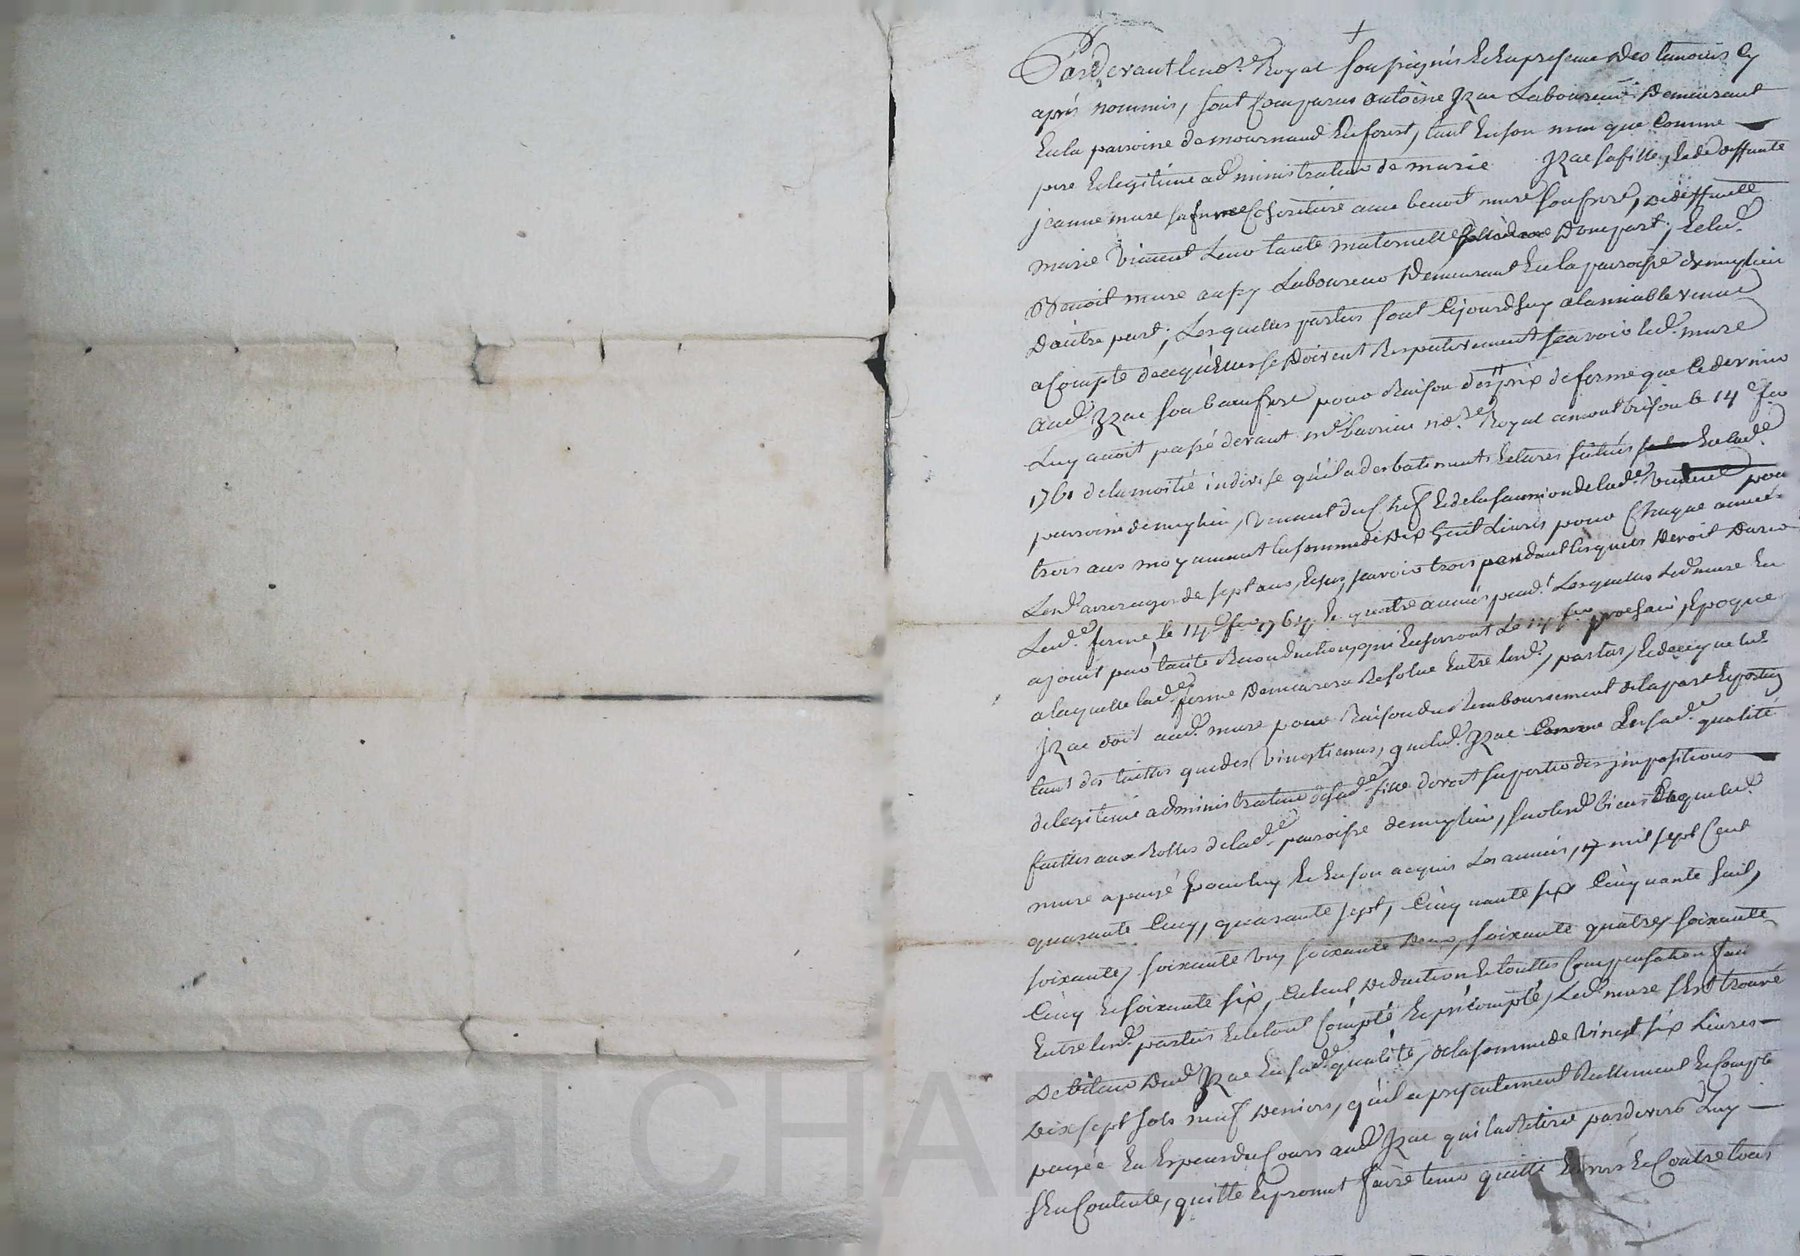 Pardevant le no.re Royal soussignés et en presence des temoins cy
après nommés, sont comparus antoine Jzac Laboureur demeurant
en la paroisse de mournand en forest, tant en son nom que comme
pere et legitime administrateur de marie Jzac sa fille, et de deffunte
jeanne mure sa femme cohéritiere avec benoit mure son frere, de deffunte
marie vincent leur tante maternelle d'une part, et led.
Benoit mure aussy Laboureur demeurant en la paroisse de
d'autre part; Lesquelles parties sont cejourd'huy a l'amiable venue
a compte de ce qu'elles se doivent respectivement scavoir led. mure
aud. Jzac son beaufrere pour raison des prix de ferme que ce dernier
Luy avoit passé devant m.e no.re Royal a montbrison le 14.e fev.
1761 de la moitié indivise qu'il a des batiments et terres situés en lad.e
paroisse de venant du chef et de la succession de lad.e vincent pour
trois ans moyennant la somme de dix huit Livres pour chaque année
Lesd. arrerages de sept ans, scavoir trois pendant lesquels devoit durer
Lad.e ferme le 14.e fev. 1764 et quatre années pend.t Lesquelles led. mure en
a jouit par tacite reconduction, qui finiront le 14 f.er prochain, époque
a laquelle lad.e ferme demeurera resolue entre lesd. parties, et de ce que led.
Jzac doit aud. mure pour raison du remboursement de la part et portion
tant des tailles que des vingtiemes, que led. Jzac comme en sad.e qualité
de legitime administrateur de sad.e fille devoit supporter des jmpositions
faittes aux rolles de lad.e paroisse de sur lesd. biens et que led.
mure a payé pour luy et en son acquis Les années, mil sept cent
quarante cinq, quarante sept, cinquante six cinquante huit,
soixante, soixante un, soixante deux, soixante quatre, soixante
cinq et soixante six, deduction et touttes compensation faite
entre lesd. parties et le tout compté et précompté, led. mure s'est trouvé
debiteur dud. Jzac en sad.e qualité, de la somme de vingt six Livres
dix sept sols neuf deniers, qu'il a presentement reellement et compté
payée en especes du cours aud. Jzac qui l'a retirée pardevers Luy
s'en contente, quitte et promet faire tenir quitte envers et contre tous
Pascal